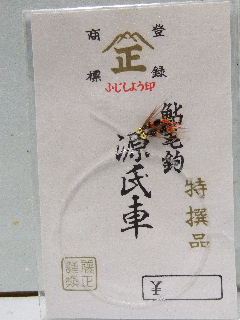 登録
商標
正
ふじしょう印
鮎毛鈎
源氏車
特撰品
¥